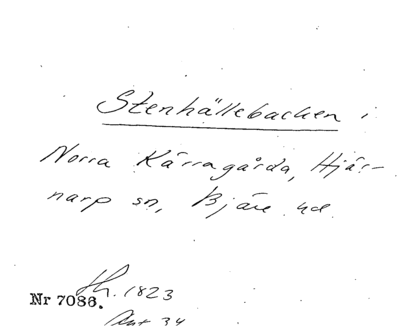 Stenhällebacken i
Norra Kärragårda, Hjär-
narp sn, Bjäre hd.
Nr 7086. 1823
34